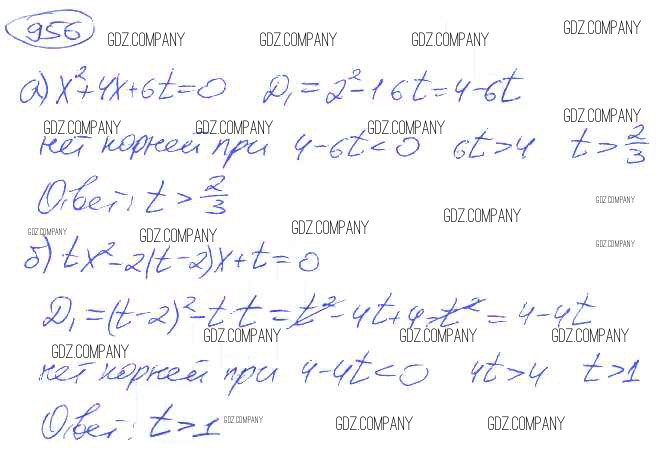 956
GDZ.COMPANY GDZ.COMPANY GDZ.COMPANY GDZ.COMPANY
а) x²+4x+6t=0 D₁=2²-1·6t=4-6t
GDZ.COMPANY GDZ.COMPANY GDZ.COMPANY GDZ.COMPANY
нет корней при 4-6t<0 6t>4 t>2/3
Ответ: t>2/3
GDZ.COMPANY
GDZ.COMPANY GDZ.COMPANY GDZ.COMPANY GDZ.COMPANY
GDZ.COMPANY
б) tx²-2(t-2)x+t=0
D₁=(t-2)²-t·t=t²-4t+4-t²=4-4t
GDZ.COMPANY GDZ.COMPANY GDZ.COMPANY GDZ.COMPANY
нет корней при 4-4t<0 4t>4 t>1
Ответ: t>1
GDZ.COMPANY GDZ.COMPANY GDZ.COMPANY